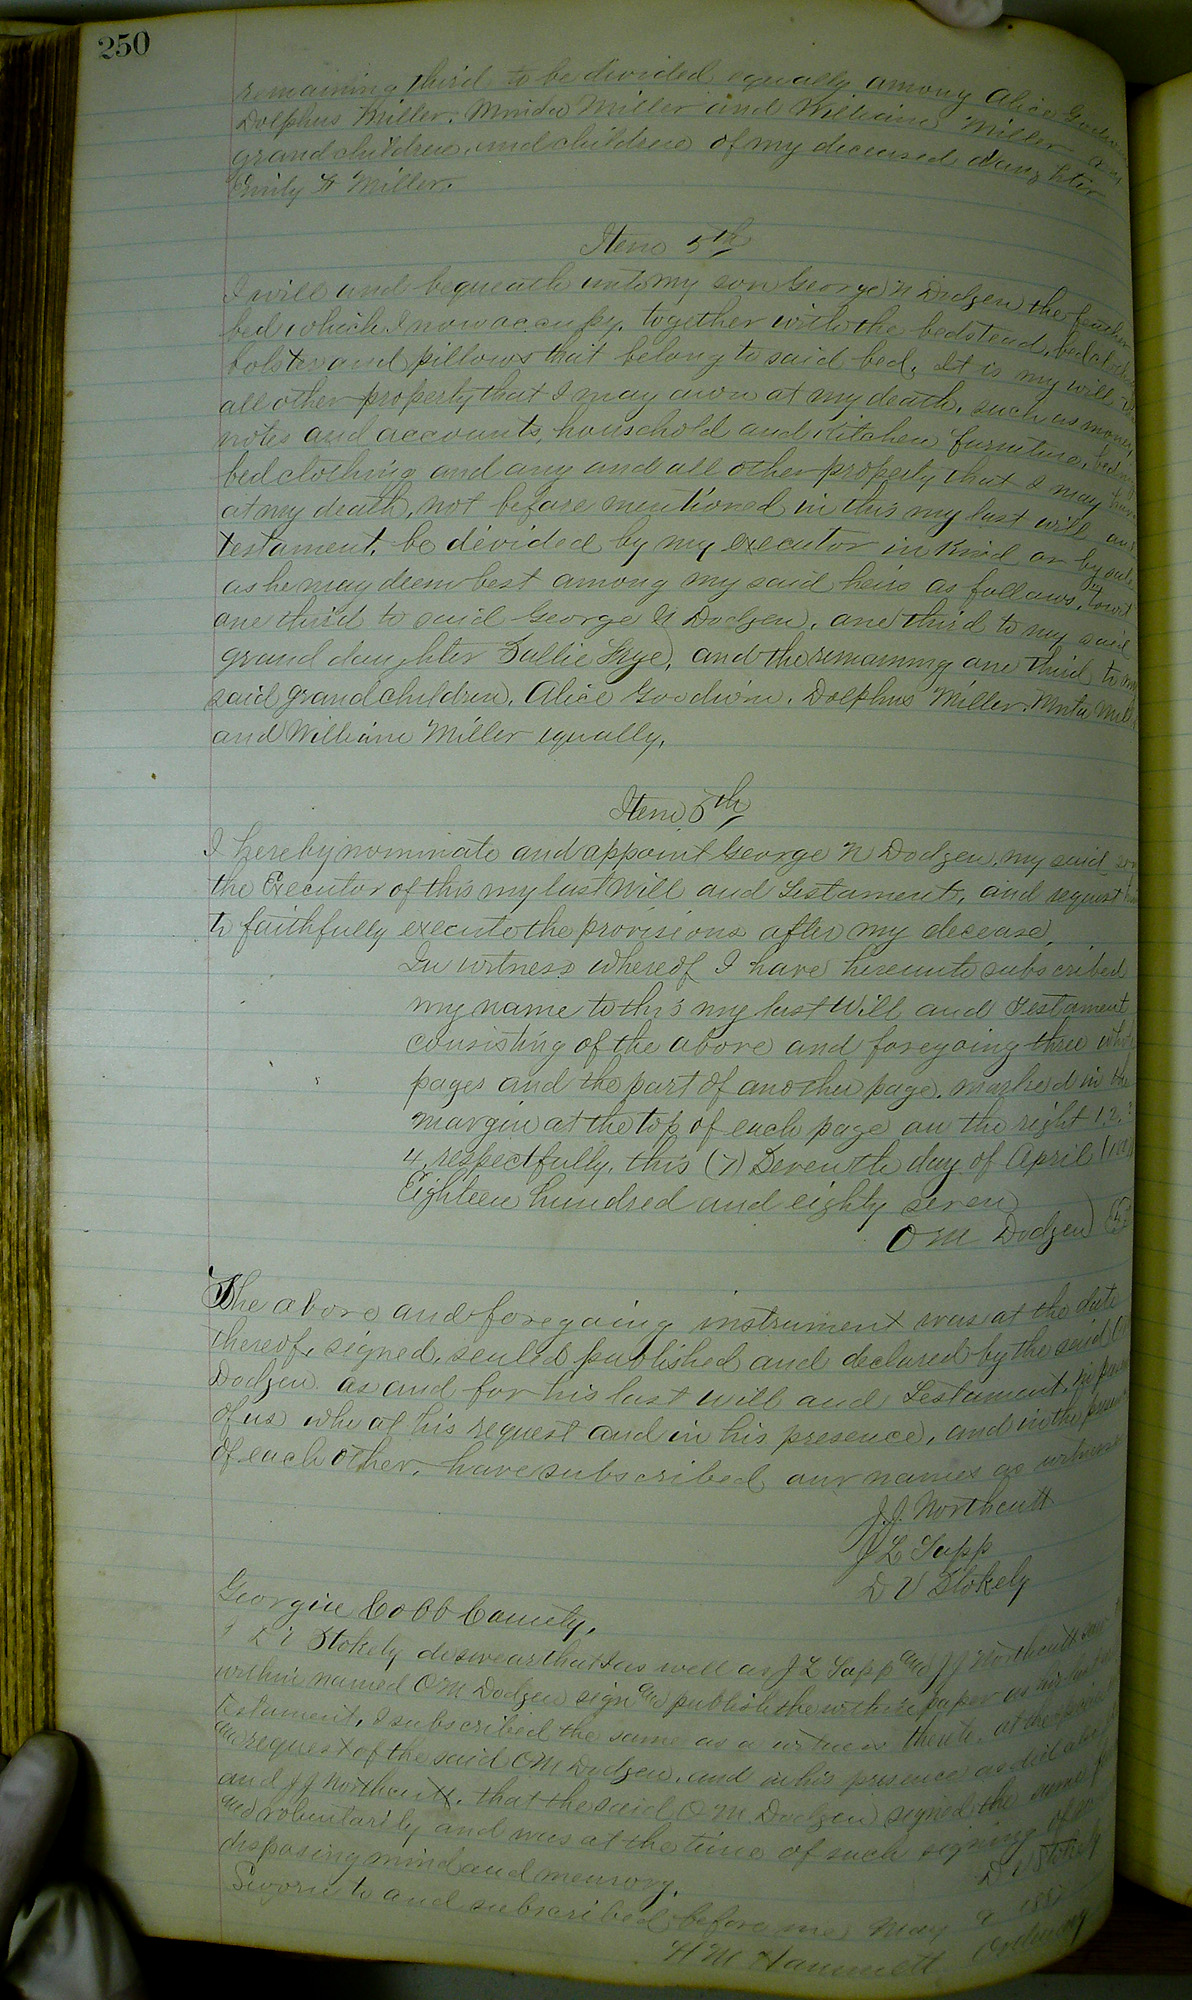 250
remaining third to be divided equally among Alice Goodwin
Dolphus Miller. Minda Miller and William Miller
grandchildren, and children of my deceased daughter
Emily H Miller.
Item 5th
I will and bequeath unto my son George N Dodgen the feather
bed which I now occupy, together with the bedstead, bed clothes
bolster and pillows that belong to said bed, It is my will
all other property that I may own at my death, such as money,
notes and accounts, household and Kitchen furniture, bed
bed clothing and any and all other property that I may have
at my death, not before mentioned in this my last will and
testament, be divided by my executor in Kind or by sale
as he may deem best among my said heirs as follows, towit
one third to said George N Dodgen, one third to my said
grand daughter Sallie Frye, and the remaining one third to my
said grandchildren, Alice Goodwin, Dolphus Miller,
and William Miller equally,
Item 5th
I hereby nominate and appoint George N Dodgen, my said son
the Executor of this my last Will and Testament, and request
to faithfully execute the provisions after my decease,
In witness whereof I have hereunto subscribed
my name to this my last Will and Testament
consisting of the above and foregoing three
pages and the part of another page, marked in the
margin at the top of each page on the right 1, 2,
4, respectfully, this (7) Seventh day of April
Eighteen hundred and eighty seven
O M Dodgen
The above and foregoing instrument was at the date
thereof, signed, sealed published and declared by the said
Dodgen as and for his last will and Testament, in
of us who at his request and in his presence, and in the
of each other, have subscribed our names as witnesses
J. J. Northcutt
J L Tapp
D V Stokely
Georgia Cobb County,
I D V Stokely do swear that I as well as J L Tapp and J J Northcutt saw
within named O M Dodgen sign and publish the within paper as his last
testament, I subscribed the same as a witness thereto, at the
and request of the said O M Dodgen, and in his presence as did also
and J J Northcutt, that the said O M Dodgen signed the same
and voluntarily and was at the time of such signing of
disposing mind and memory.
D V Stokely
Sworn to and subscribed before me May 9
H M Hammett Ordinary